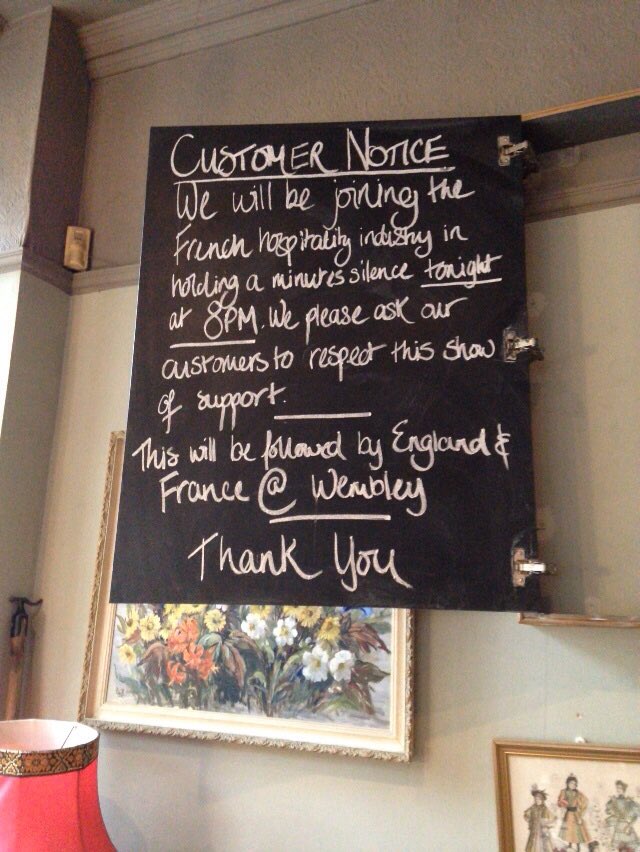 CUSTOMER NOTICE
We will be joining the
French hospitality industry in
holding a minutes silence tonight
at 8PM. We please ask our
customers to respect this show
of support.
This will be followed by England &
France @ Wembley
Thank You